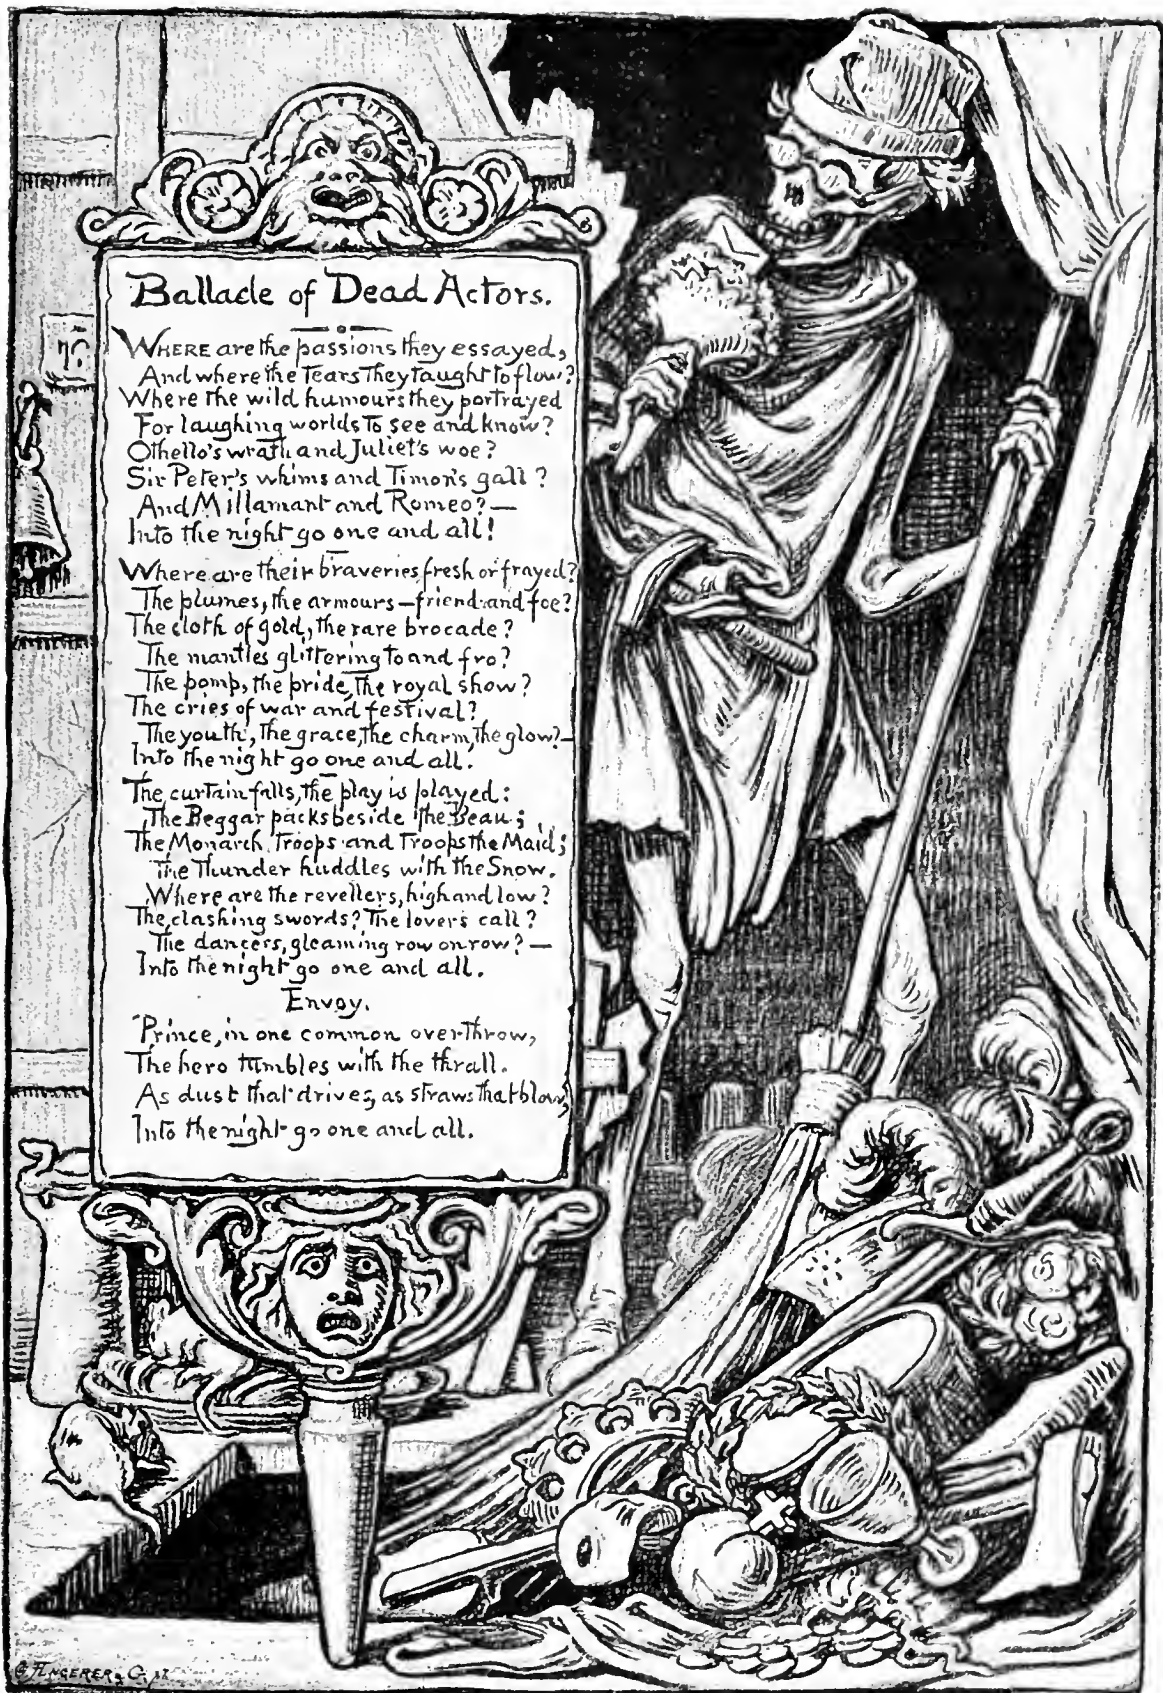 Ballade of Dead Actors.
WHERE are the passions they essayed,
And where the Tears They taught to flow?
Where the wild humours they portrayed
For laughing worlds To see and know?
Othello's wrath and Juliet's woe?
Sir Peter's whims and Timon's gall?
And Millamant and Romeo?—
Into the night go one and all!
Where are their braveries, fresh or frayed?
The plumes, the armours—friend and foe?
The cloth of gold, the rare brocade?
The mantles glittering to and fro?
The pomp, the pride, The royal show?
The cries of war and festival?
The youth, The grace, the charm, the glow?—
Into the night go one and all.
The curtain falls, the play is played:
The Beggar packs beside The Beau;
The Monarch Troops and Troops the Maid;
The Thunder huddles with the Snow.
Where are the revellers, high and low?
The clashing swords? The lover's call?
The dancers, gleaming row on row?—
Into the night go one and all.
Envoy.
Prince, in one common overthrow,
The hero tumbles with the thrall.
As dust that drives, as straws that blow,
Into the night go one and all.